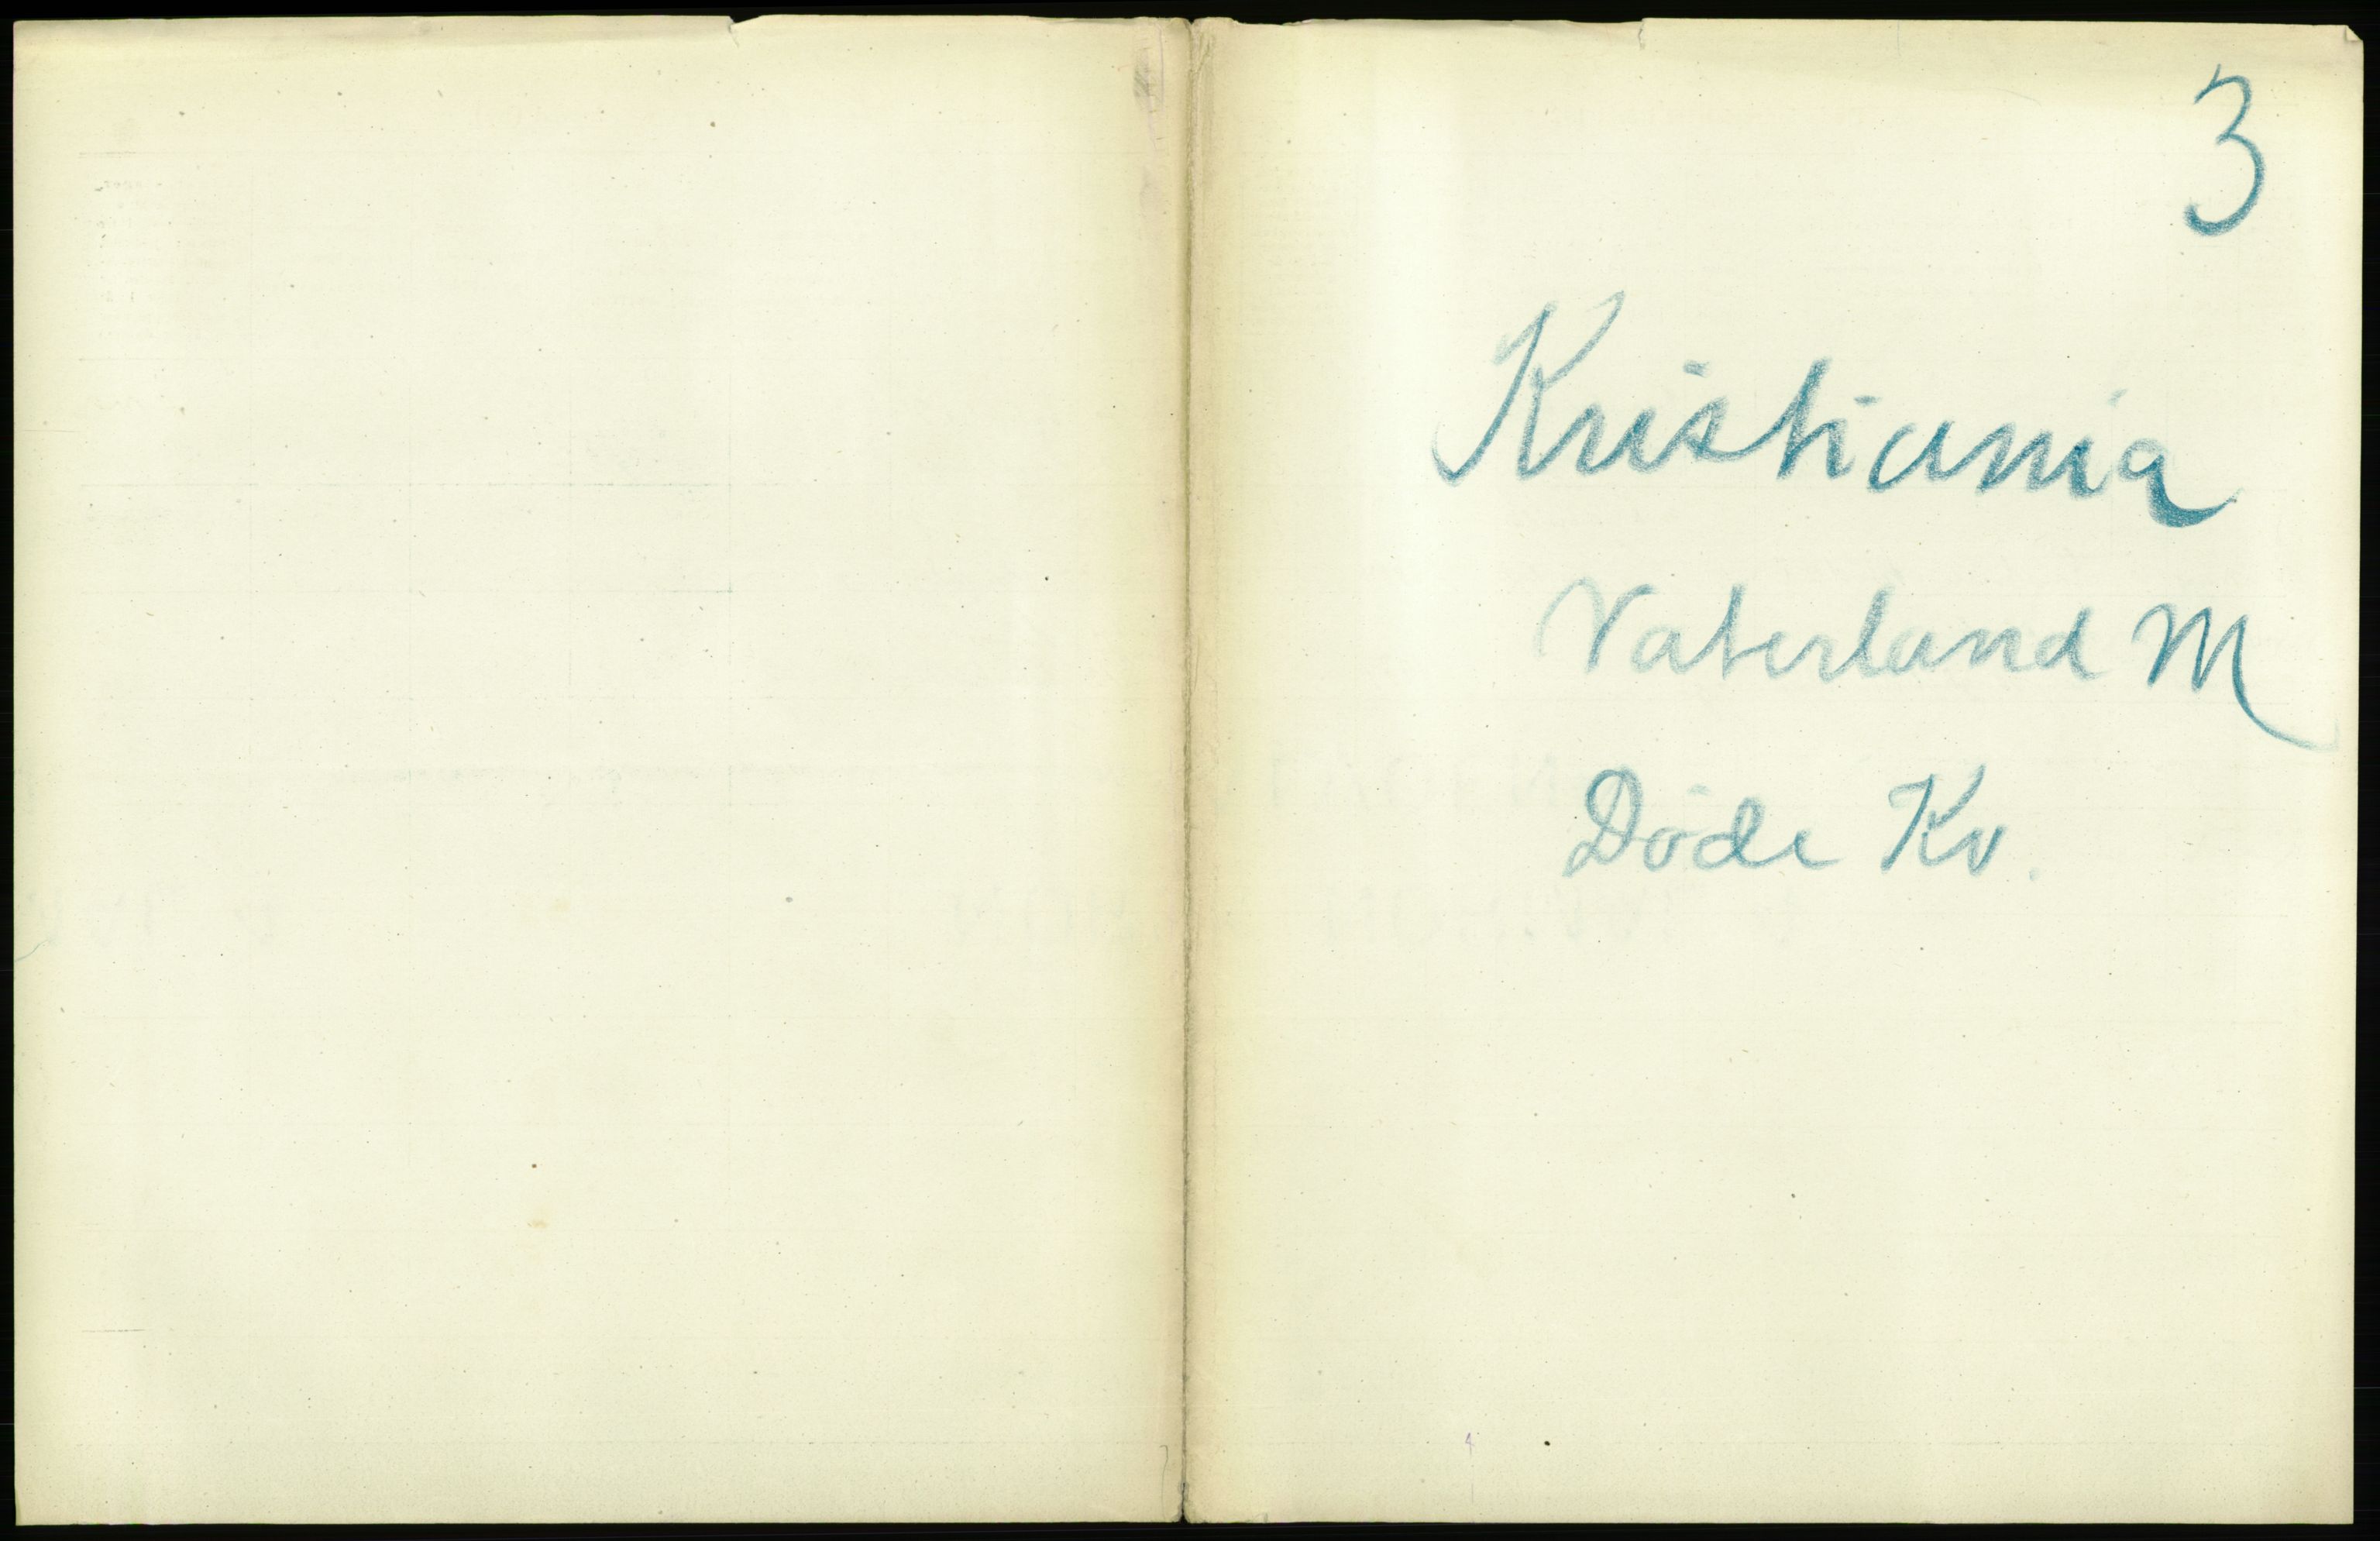 3
Kristiania
Vaterland M
Døde Kv.